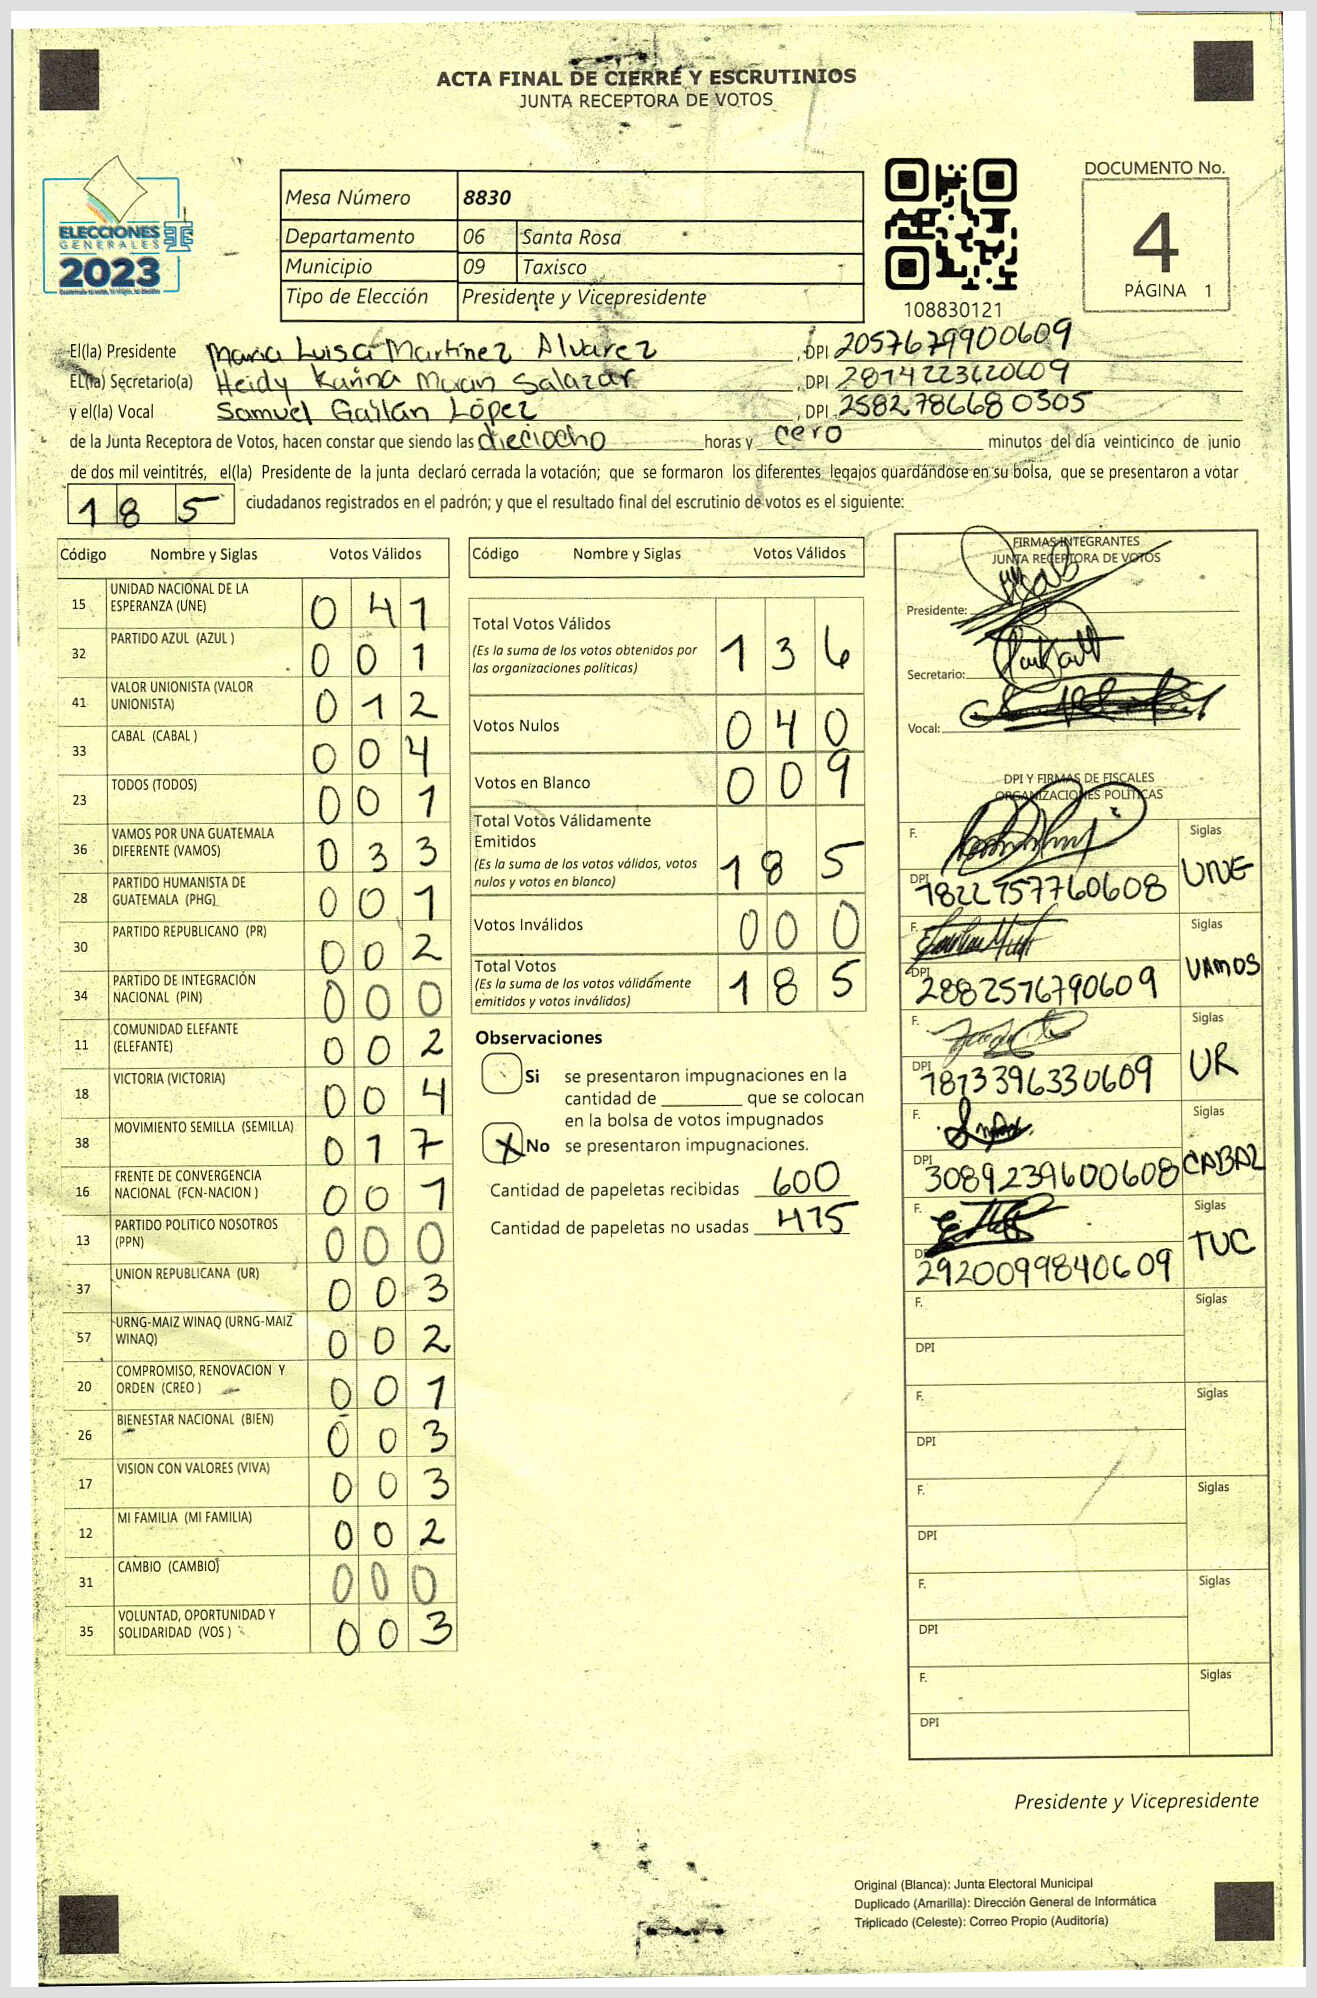 ACTA FINAL DE CIERRE Y ESCRUTINIOS
JUNTA RECEPTORA DE VOTOS
ELECCIONES
GENERALES
2023
Mesa Número 8830
Departamento 06 Santa Rosa
Municipio 09 Taxisco
Tipo de Elección Presidente y Vicepresidente
108830121
DOCUMENTO No.
4
PÁGINA 1
El(la) Presidente Maria Luisa Martinez Alvarez, DPI 2057679900609
EL(la) Secretario(a) Heidy Karina Moran Salazar, DPI 2874223620609
y el(la) Vocal Samuel Gaitán López, DPI 2582786680305
de la Junta Receptora de Votos, hacen constar que siendo las dieciocho horas y cero minutos del día veinticinco de junio
de dos mil veintitrés, el(la) Presidente de la junta declaró cerrada la votación; que se formaron los diferentes legajos guardándose en su bolsa, que se presentaron a votar
185 ciudadanos registrados en el padrón; y que el resultado final del escrutinio de votos es el siguiente:
Código Nombre y Siglas Votos Válidos
15 UNIDAD NACIONAL DE LA ESPERANZA (UNE) 041
32 PARTIDO AZUL (AZUL ) 001
41 VALOR UNIONISTA (VALOR UNIONISTA) 012
33 CABAL (CABAL ) 004
23 TODOS (TODOS) 001
36 VAMOS POR UNA GUATEMALA DIFERENTE (VAMOS) 033
28 PARTIDO HUMANISTA DE GUATEMALA (PHG) 001
30 PARTIDO REPUBLICANO (PR) 002
34 PARTIDO DE INTEGRACIÓN NACIONAL (PIN) 000
11 COMUNIDAD ELEFANTE (ELEFANTE) 002
18 VICTORIA (VICTORIA) 004
38 MOVIMIENTO SEMILLA (SEMILLA) 017
16 FRENTE DE CONVERGENCIA NACIONAL (FCN-NACION ) 001
13 PARTIDO POLITICO NOSOTROS (PPN) 000
37 UNION REPUBLICANA (UR) 003
57 URNG-MAIZ WINAQ (URNG-MAIZ WINAQ) 002
20 COMPROMISO, RENOVACION Y ORDEN (CREO ) 001
26 BIENESTAR NACIONAL (BIEN) 003
17 VISION CON VALORES (VIVA) 003
12 MI FAMILIA (MI FAMILIA) 002
31 CAMBIO (CAMBIO) 000
35 VOLUNTAD, OPORTUNIDAD Y SOLIDARIDAD (VOS ) 003
Código Nombre y Siglas Votos Válidos
Total Votos Válidos 136
(Es la suma de los votos obtenidos por
las organizaciones politicas)
Votos Nulos 040
Votos en Blanco 009
Total Votos Válidamente
Emitidos 185
(Es la suma de los votos válidos, votos
nulos y votos en blanco)
Votos Inválidos 000
Total Votos 185
(Es la suma de los votos válidamente
emitidos y votos inválidos)
Observaciones
Si se presentaron impugnaciones en la
cantidad de ________ que se colocan
en la bolsa de votos impugnados
X No se presentaron impugnaciones.
Cantidad de papeletas recibidas 600
Cantidad de papeletas no usadas 415
FIRMAS INTEGRANTES
JUNTA RECEPTORA DE VOTOS
Presidente:
Secretario:
Vocal:
DPI Y FIRMAS DE FISCALES
ORGANIZACIONES POLÍTICAS
F. Siglas
DPI 1822757760608 UNE
F. Siglas
DPI 2882576790609 VAMOS
F. Siglas
DPI 1873396330609 UR
F. Siglas
DPI 3089239600608 CABAL
F. Siglas
DPI 2920099840609 TUC
F. Siglas
DPI
F. Siglas
DPI
F. Siglas
DPI
F. Siglas
DPI
F. Siglas
DPI
Presidente y Vicepresidente
Original (Blanca): Junta Electoral Municipal
Duplicado (Amarilla): Dirección General de Informática
Triplicado (Celeste): Correo Propio (Auditoría)